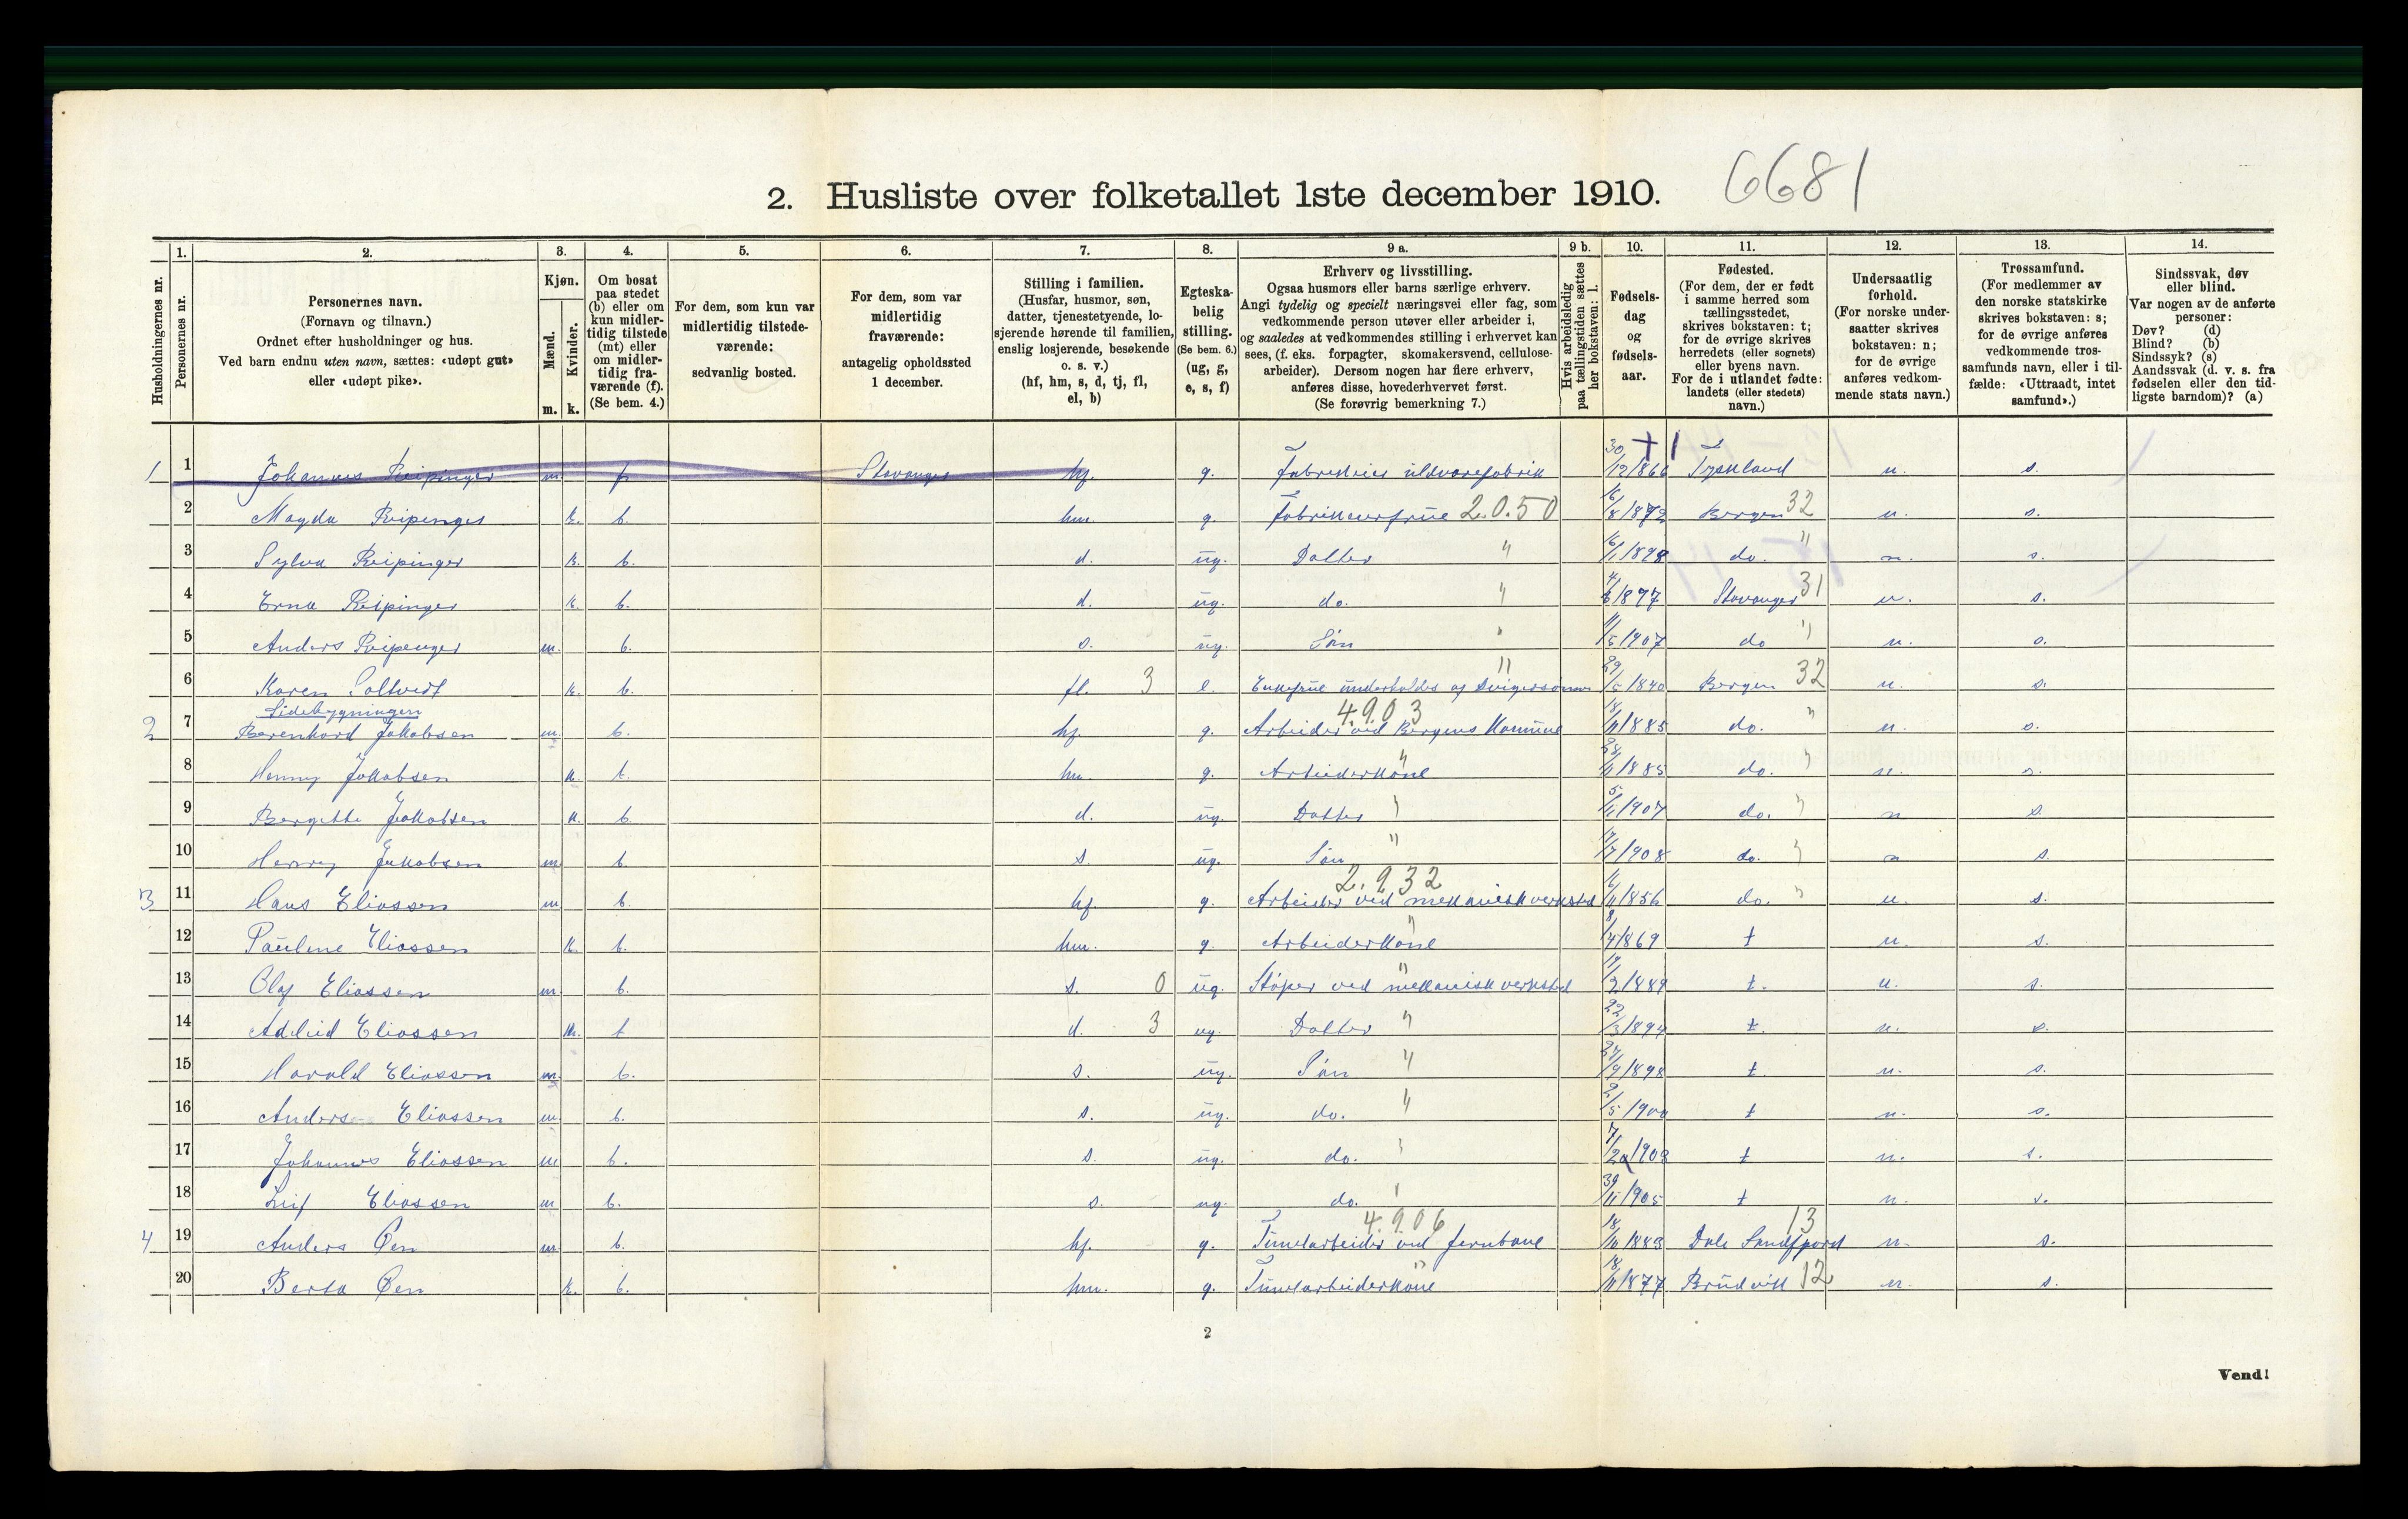 2. Husliste over folketallet 1ste december 1910. 6681
1. 2. 3. 4. 5. 6. 7. 8. 9 a. 9 b. 10. 11. 12. 13. 14.
Husholdningernes nr.
Personernes nr.
Personernes navn.
(Fornavn og tilnavn.)
Ordnet efter husholdninger og hus.
Ved barn endnu uten navn, sættes: «udøpt gut»
eller «udøpt pike».
Kjøn.
Mænd.
Kvinder.
m. k.
Om bosat
paa stedet
(b) eller om
kun midler-
tidig tilstede
(mt) eller
om midler-
tidig fra-
værende (f).
(Se bem. 4.)
For dem, som kun var
midlertidig tilstede-
værende:
sedvanlig bosted.
For dem, som var
midlertidig
fraværende:
antagelig opholdssted
1 december.
Stilling i familien.
(Husfar, husmor, søn,
datter, tjenestetyende, lo-
sjerende hørende til familien,
enslig losjerende, besøkende
o. s. v.)
(hf, hm, s, d, tj, fl,
el, b)
Egteska-
belig
stilling.
(Se bem. 6.)
(ug, g,
e, s, f)
Erhverv og livsstilling.
Ogsaa husmors eller barns særlige erhverv.
Angi tydelig og specielt næringsvei eller fag, som
vedkommende person utøver eller arbeider i,
og saaledes at vedkommendes stilling i erhvervet kan
sees, (f. eks. forpagter, skomakersvend, cellulose-
arbeider). Dersom nogen har flere erhverv,
anføres disse, hovederhvervet først.
(Se forøvrig bemerkning 7.)
Hvis arbeidsledig
paa tællingstiden sættes
her bokstaven: l.
Fødsels-
dag
og
fødsels-
aar.
Fødested.
(For dem, der er født
i samme herred som
tællingsstedet,
skrives bokstaven: t;
for de øvrige skrives
herredets (eller sognets)
eller byens navn.
For de i utlandet fødte:
landets (eller stedets)
navn.)
Undersaatlig
forhold.
(For norske under-
saatter skrives
bokstaven: n;
for de øvrige
anføres vedkom-
mende stats navn.)
Trossamfund.
(For medlemmer av
den norske statskirke
skrives bokstaven: s;
for de øvrige anføres
vedkommende tros-
samfunds navn, eller i til-
fælde: «Uttraadt, intet
samfund».)
Sindssvak, døv
eller blind.
Var nogen av de anførte
personer:
Døv? (d)
Blind? (b)
Sindssyk? (s)
Aandssvak (d. v. s. fra
fødselen eller den tid-
ligste barndom)? (a)
1 1 Johannes Reipinger m. f. Stavanger hf. g. Fabrikeier uldvarefabrik 30/12/866 +1 Tyskland n. s.
2 Magda Reipinger k. b. hm. g. Fabrikeierfrue 2.0.50 16/8/872 Bergen 32 n. s.
3 Sylva Reipinger k. b. d. ug. Datter " 16/1/898 do. " n. s.
4 Erna Reipinger k. b. d. ug. do. " 4/6/897 Stavanger 31 n. s.
5 Anders Reipinger m. b. s. ug. Søn " 11/5/907 do " n. s.
6 Karen Soltvedt k. b. fl. 3 e. Enkefrue underholdes af Svigersønnen " 29/5/840 Bergen 32 n. s.
Sidebygningen
2 7 Berenhard Jakobsen m. b. hf. g. Arbeider ved Bergens Komune 4.903 18/11/885 do. " n. s.
8 Henny Jakobsen k. b. hm. g. Arbeiderkone " 28/11/885 do. " n. s.
9 Bergitte Jakobsen k. b. d. ug. Datter " 5/11/907 do. " n s.
10 Henry Jakobsen m b. s. ug. Søn " 17/7/908 do. " n s.
3 11 Hans Eliassen m b. hf. g. Arbeider ved mekanisk verksted 2.932 16/11/856 do. " n. s.
12 Pauline Eliassen k. b. hm. g. Arbeiderkone " 8/4/869 t n. s.
13 Olaf Eliassen m. b. s. 0 ug. Støper ved mekanisk verksted " 17/2/889 t. n. s.
14 Adelied Eliassen k. t d. 3 ug. Datter " 22/3/894 t. n. s.
15 Harald Eliassen m. b. s. ug. Søn " 27/9/898 t. n. s.
16 Anders Eliassen m. b. s. ug. do. " 2/5/900 t n. s.
17 Johannes Eliassen m b. s. ug. do. " 1903 t n. s.
18 Leif Eliassen m b. s. ug. do. " 30/11/905 t n. s.
4 19 Anders Øen m. b. hf. g. Tunelarbeider ved jernbane 4.906 18/10/883 Dale Sundfjord 13 n. s.
20 Berta Øen k. b. hm. g. Tunelarbeiderkone " 18/11/877 Brudvik 12 n. s.
2
Vend!